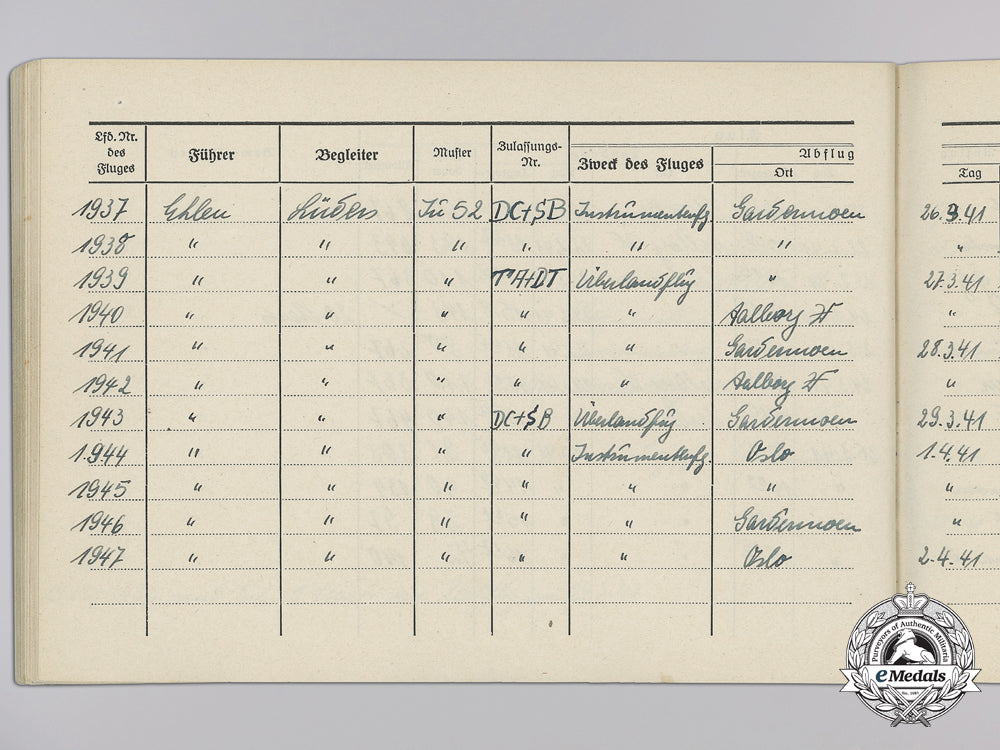 Lfd. Nr. des Fluges Führer Begleiter Muster Zulassungs-Nr. Zweck des Fluges Abflug Ort Tag
1937 Ehlen Lüders Ju 52 DC+SB Instrumentenflg. Gardermoen 26.3.41
1938 " " " " " " "
1939 " " " TA+DT Überlandflüg " 27.3.41
1940 " " " " " Aalborg "
1941 " " " " " Gardermoen 28.3.41
1942 " " " " " Aalborg "
1943 " " " DC+SB Überlandflüg Gardermoen 29.3.41
1944 " " " " Instrumentenflg. Oslo 1.4.41
1945 " " " " " " "
1946 " " " " " Gardermoen "
1947 " " " " " Oslo 2.4.41
Purveyors of Authentic Militaria
eMedals